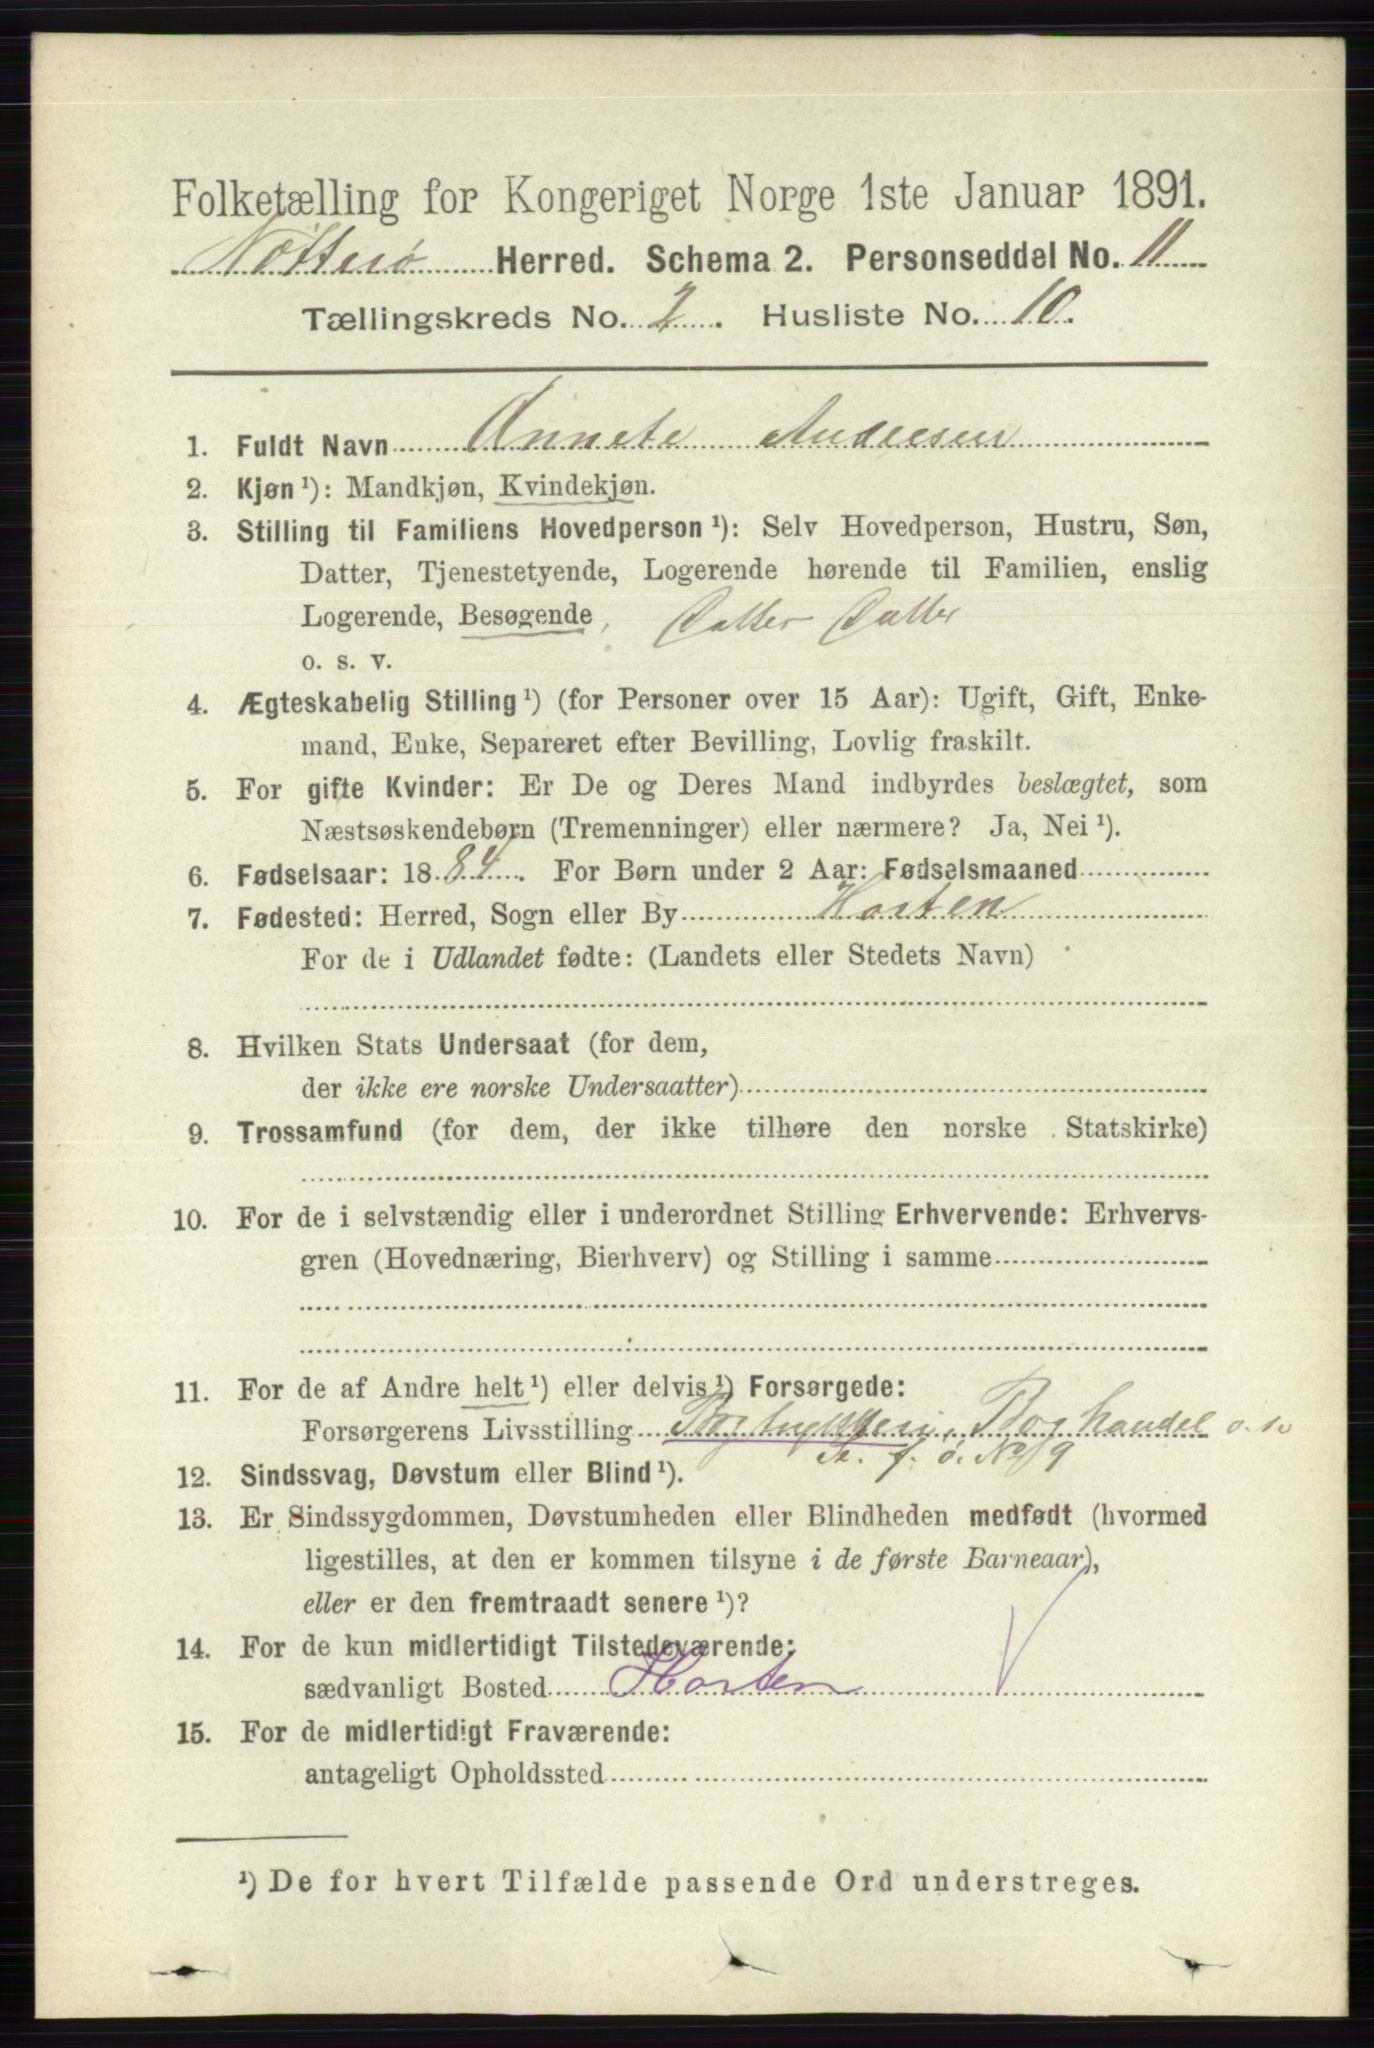 Folketælling for Kongeriget Norge 1ste Januar 1891.
Nøtterø Herred. Schema 2. Personseddel No. 11
Tællingskreds No. 2. Husliste No. 10.
1. Fuldt Navn Annete Andresen
2. Kjøn ¹): Mandkjøn, Kvindekjøn.
3. Stilling til Familiens Hovedperson ¹): Selv Hovedperson, Hustru, Søn,
Datter, Tjenestetyende, Logerende hørende til Familien, enslig
Logerende, Besøgende, Datter Datter
o. s. v.
4. Ægteskabelig Stilling ¹) (for Personer over 15 Aar): Ugift, Gift, Enke-
mand, Enke, Separeret efter Bevilling, Lovlig fraskilt.
5. For gifte Kvinder: Er De og Deres Mand indbyrdes beslægtet, som
Næstsøskendebørn (Tremenninger) eller nærmere? Ja, Nei ¹).
6. Fødselsaar: 1884. For Børn under 2 Aar: Fødselsmaaned
7. Fødested: Herred, Sogn eller By Horten
For de i Udlandet fødte: (Landets eller Stedets Navn)
8. Hvilken Stats Undersaat (for dem,
der ikke ere norske Undersaatter)
9. Trossamfund (for dem, der ikke tilhøre den norske Statskirke)
10. For de i selvstændig eller i underordnet Stilling Erhvervende: Erhvervs-
gren (Hovednæring, Bierhverv) og Stilling i samme
11. For de af Andre helt ¹) eller delvis ¹) Forsørgede:
Forsørgerens Livsstilling Bogtrykkeri, Boghandel o.
f. ö. No 9
12. Sindssvag, Døvstum eller Blind ¹).
13. Er Sindssygdommen, Døvstumheden eller Blindheden medfødt (hvormed
ligestilles, at den er kommen tilsyne i de første Barneaar),
eller er den fremtraadt senere ¹)?
14. For de kun midlertidigt Tilstedeværende:
sædvanligt Bosted Horten
15. For de midlertidigt Fraværende:
antageligt Opholdssted
¹) De for hvert Tilfælde passende Ord understreges.